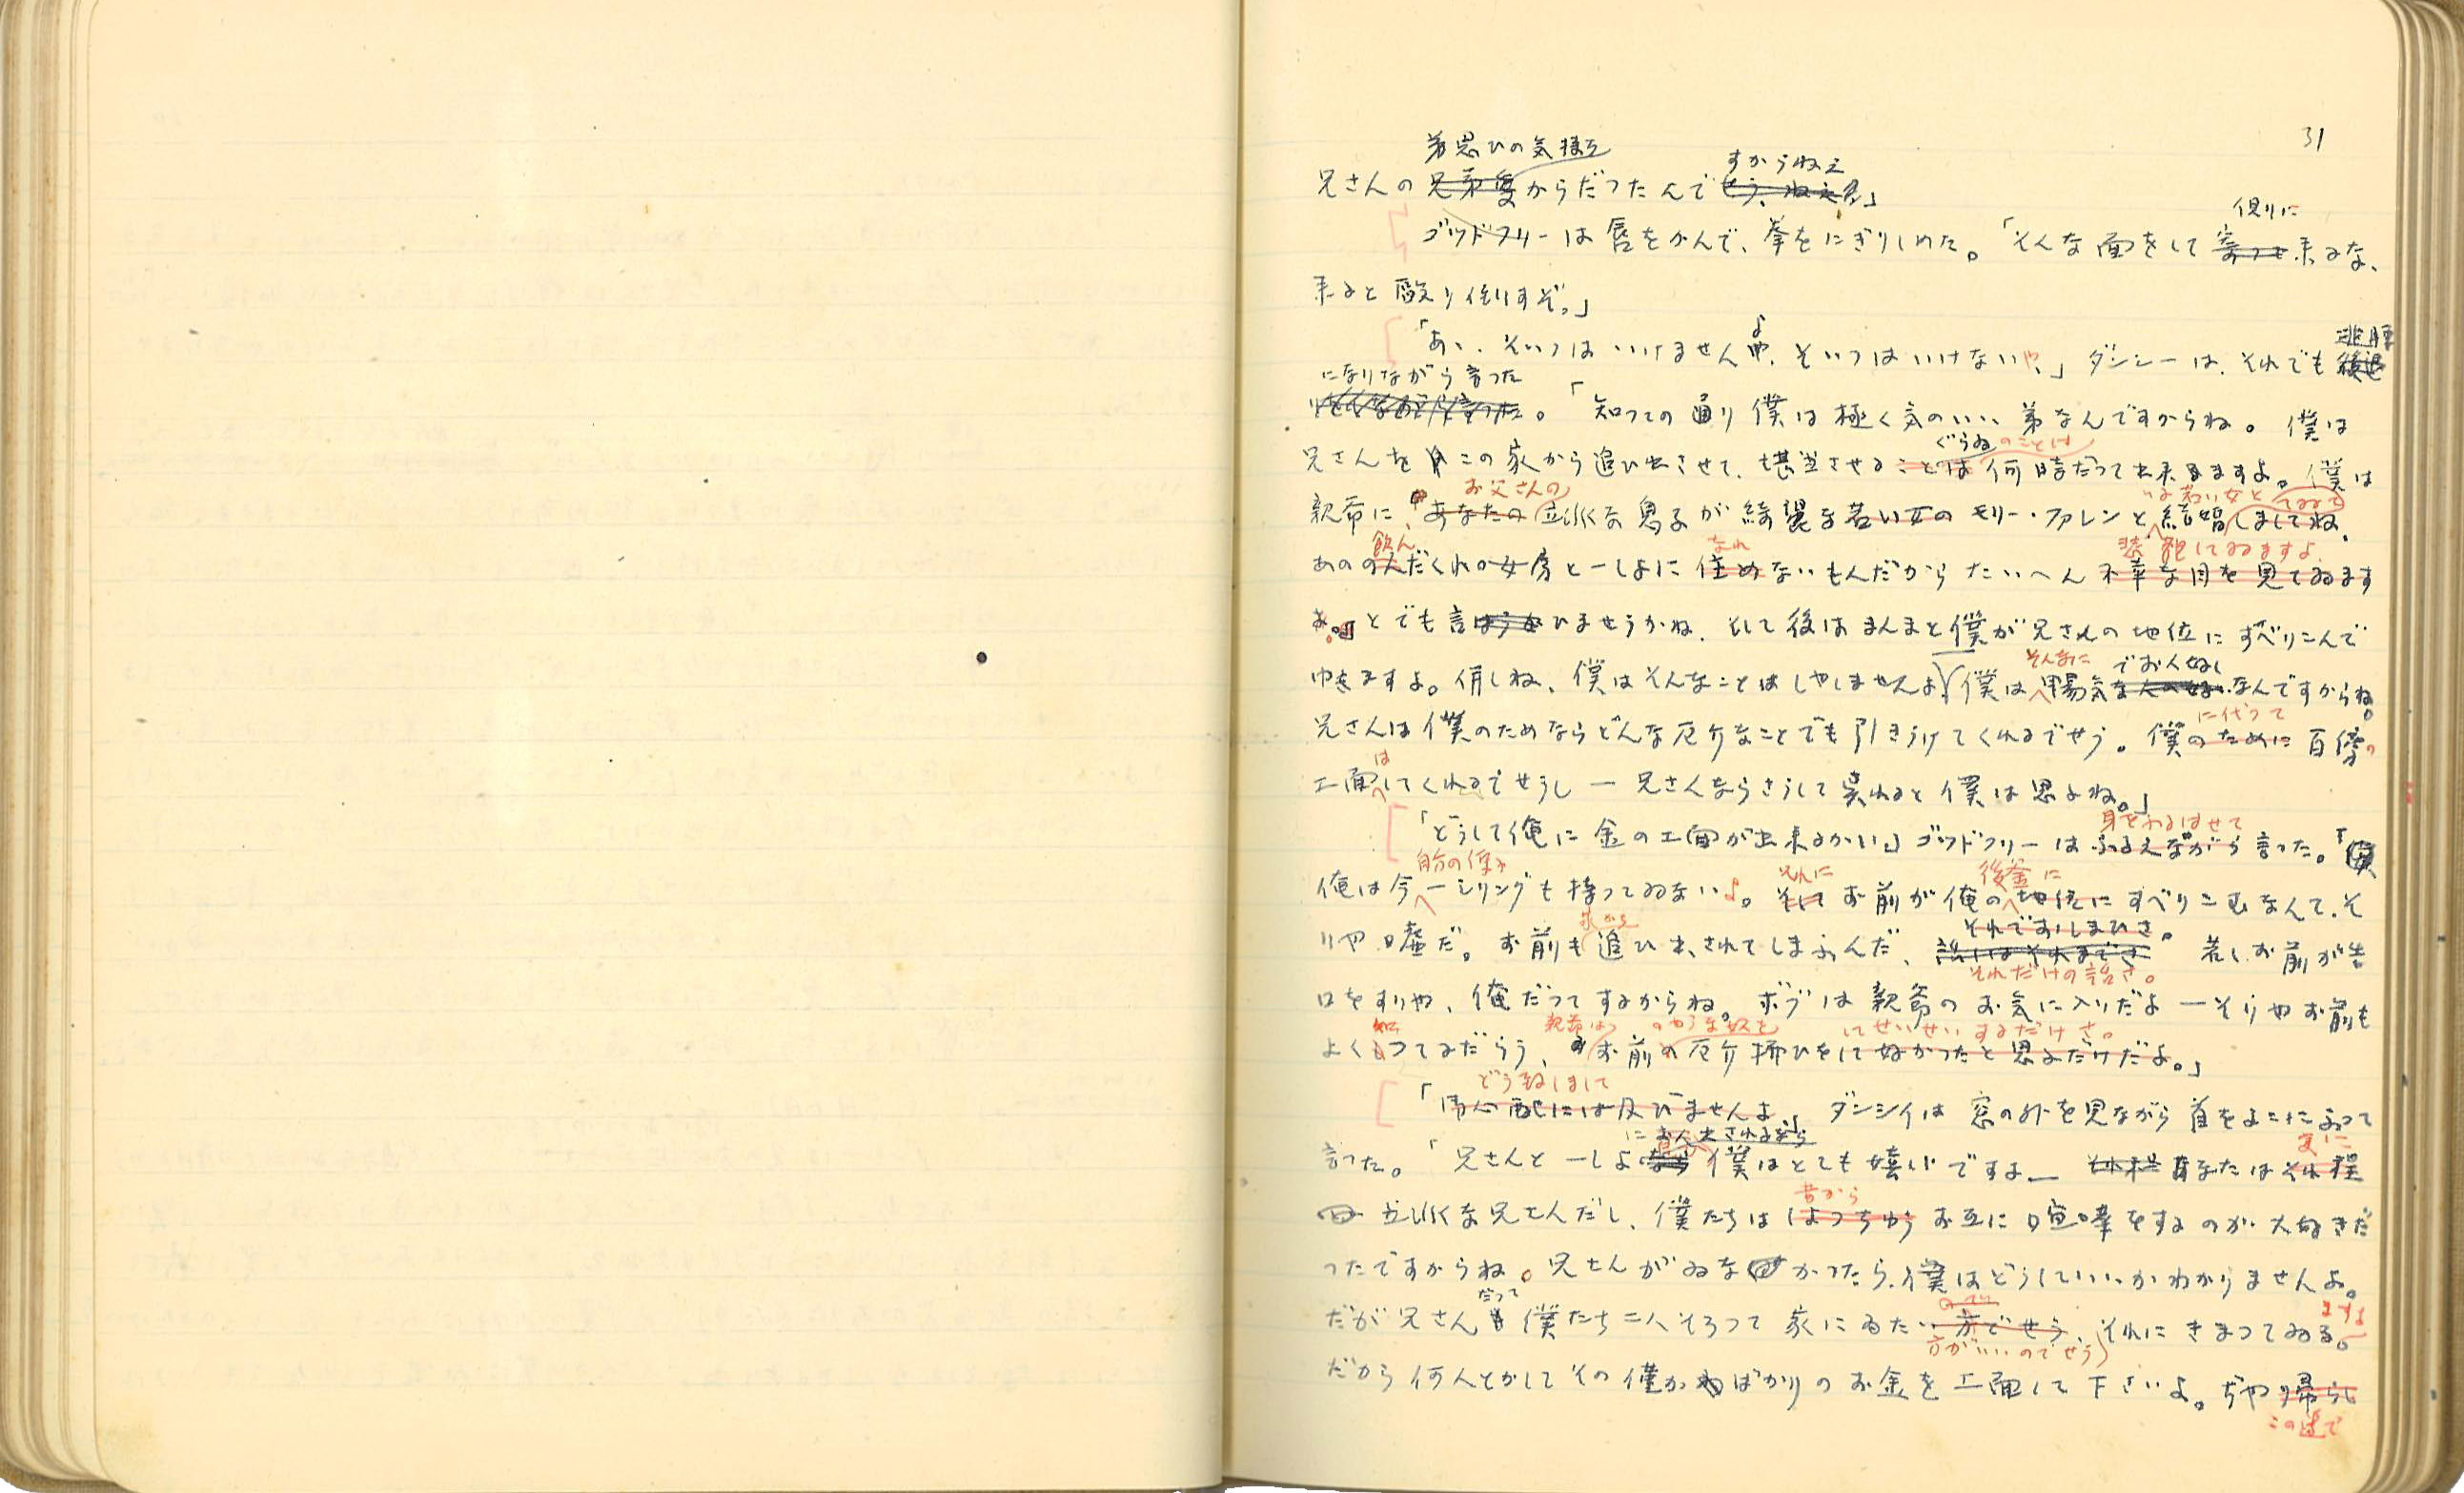 31
弟思ひの気持
すからねえ
兄さんの兄弟愛からだつたんでせう、ねえ」
仮りに
ゴッドフリーは唇をかんで、拳をにぎりしめた。「そんな面をして寄つて来るな、
来ると殴り倒すぞ。」
よ
逃腰
「あゝ、そいつはいけませんや、そいつはいけないや、」ダンシーは、それでも後退
になりながら言つた
。「知つての通り僕は極く気のいゝ弟なんですからね。僕は
ぐらゐのことは
兄さんをこの家から追ひ出させて、勘当させることは何時だつて出来ますよ。僕は
お父さんの
い若い女と
てゐて
親爺に、あなたの立派な息子が綺麗な若い女のモリー・ファレンと結婚しましてね、
飲ん
なれ
悲観してゐますよ
あののんだくれの女房と一しよに住めないもんだからたいへん不幸な目を見てゐます
とでも言ひませうかね、そして後はまんまと僕が兄さんの地位にすべりこんで
そんなに
でお人好し
ゆきますよ。併しね、僕はそんなことはしやしませんよ、僕は陽気な人の好いなんですからね。
に代つて
兄さんは僕のためならどんな厄介なことでも引きうけてくれるでせう。僕のために百磅の
は
工面してくれるでせうし ― 兄さんならさうして呉れると僕は思よね。」
身をふるはせて
「どうして俺に金の工面が出来るかい」ゴッドフリーはふるえながら言つた。「
自分の
それに
後釜に
俺は今一シリングも持つてゐないよ。そしてお前が俺の地位にすべりこむなんて、そ
それでおしまひさ。
りや嘘だ。お前も追ひ出されてしまふんだ、話はそれまでさ 若しお前が告
それだけの話さ。
口をすりや、俺だつてするからね。ボブは親爺のお気に入りだよ ― そりやお前も
知
親爺は
のやうな奴を
してせいせいするだけさ。
よくしつてるだらう、お前の厄介払ひをして好かつたと思ふだけだよ。」
どう致しまして
「御心配には及びませんよ」ダンシイは窓の外を見ながら首をよこにふつて
にお出されるなら
更に
言つた。「兄さんと一しよなら僕はとても嬉しいですよ ― それにあなたはそれ程
昔から
立派な兄さんだし、僕たちはしよつちゆうお互に喧嘩をするのが大好きだ
つたですからね。兄さんがゐなかつたら、僕はどうしていゝかわかりませんよ。
だって
ますよ
だが兄さんも僕たち二人そろつて家にゐたい方でせう、それにきまつてゐる。
方がいいのでせう
だから何んとかしてその僅かばかりのお金を工面して下さいよ。ぢや帰らし
この辺で